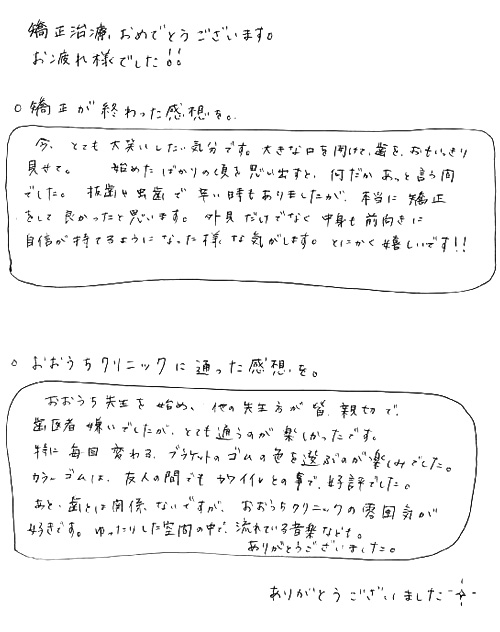 矯正治療、おめでとうございます。
お疲れ様でした!!
○ 矯正が終わった感想を。
今、とても大笑いしたい気分です。大きな口を開けて、歯を、おもいっきり
見せて。 始めたばかりの頃を思い出すと、何だかあっと言う間
でした。抜歯や虫歯で辛い時もありましたが、本当に矯正
をして良かったと思います。外見だけでなく中身も前向きに
自信が持てるようになった様な気がします。とにかく嬉しいです!!
○ おおうちクリニックに通った感想を。
おおうち先生を始め、他の先生方が皆、親切で、
歯医者嫌いでしたが、とても通うのが楽しかったです。
特に毎回変わる、ブラケットのゴムの色を選ぶのが楽しみでした。
カラーゴムは、友人の間でもカワイイとの事で、好評でした。
あと、歯とは関係ないですが、おおうちクリニックの雰囲気が
好きです。ゆったりした空間の中で、流れている音楽なども。
ありがとうございました。
ありがとうございました